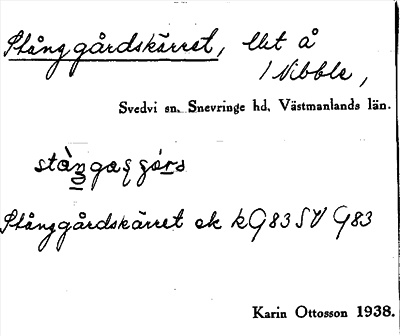 Stånggårdskärret, Ut å
1 Nibble,
Svedvi sn. Snevringe hd. Västmanlands län.
Stånggårdskärret ek kG83SV G83
Karin Ottosson 1938.